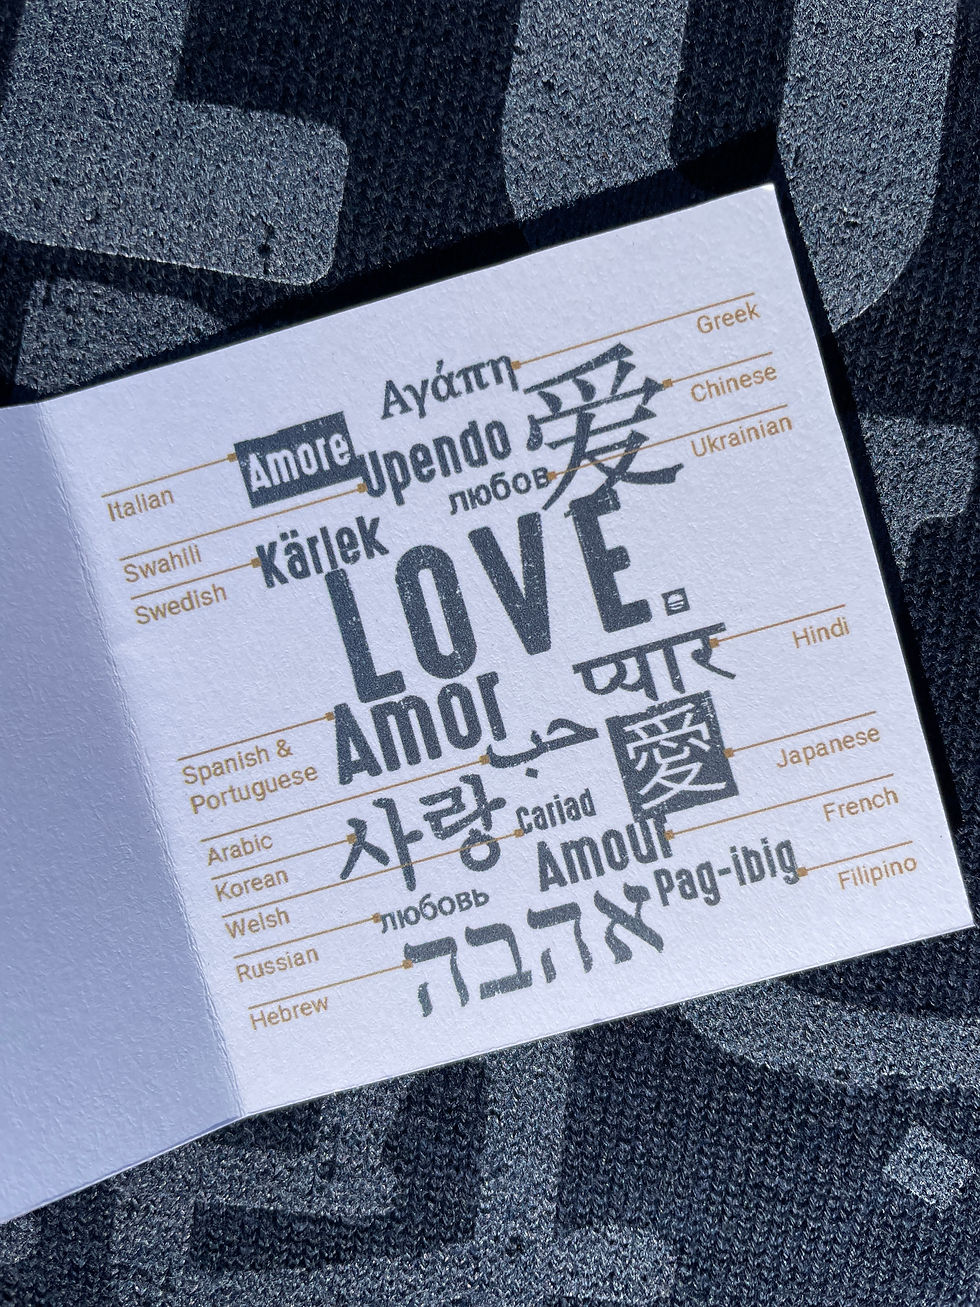 Greek
Αγάπη
爱
Chinese
Amore
Upendo
Ukrainian
любов
Italian
Swahili
Kärlek
Swedish
LOVE.
प्यार
Hindi
Amor
Spanish &
Portuguese
حب
愛
Japanese
Arabic
사랑
Cariad
French
Korean
Amour
Pag-ibig
Filipino
Welsh
любовь
Russian
אהבה
Hebrew